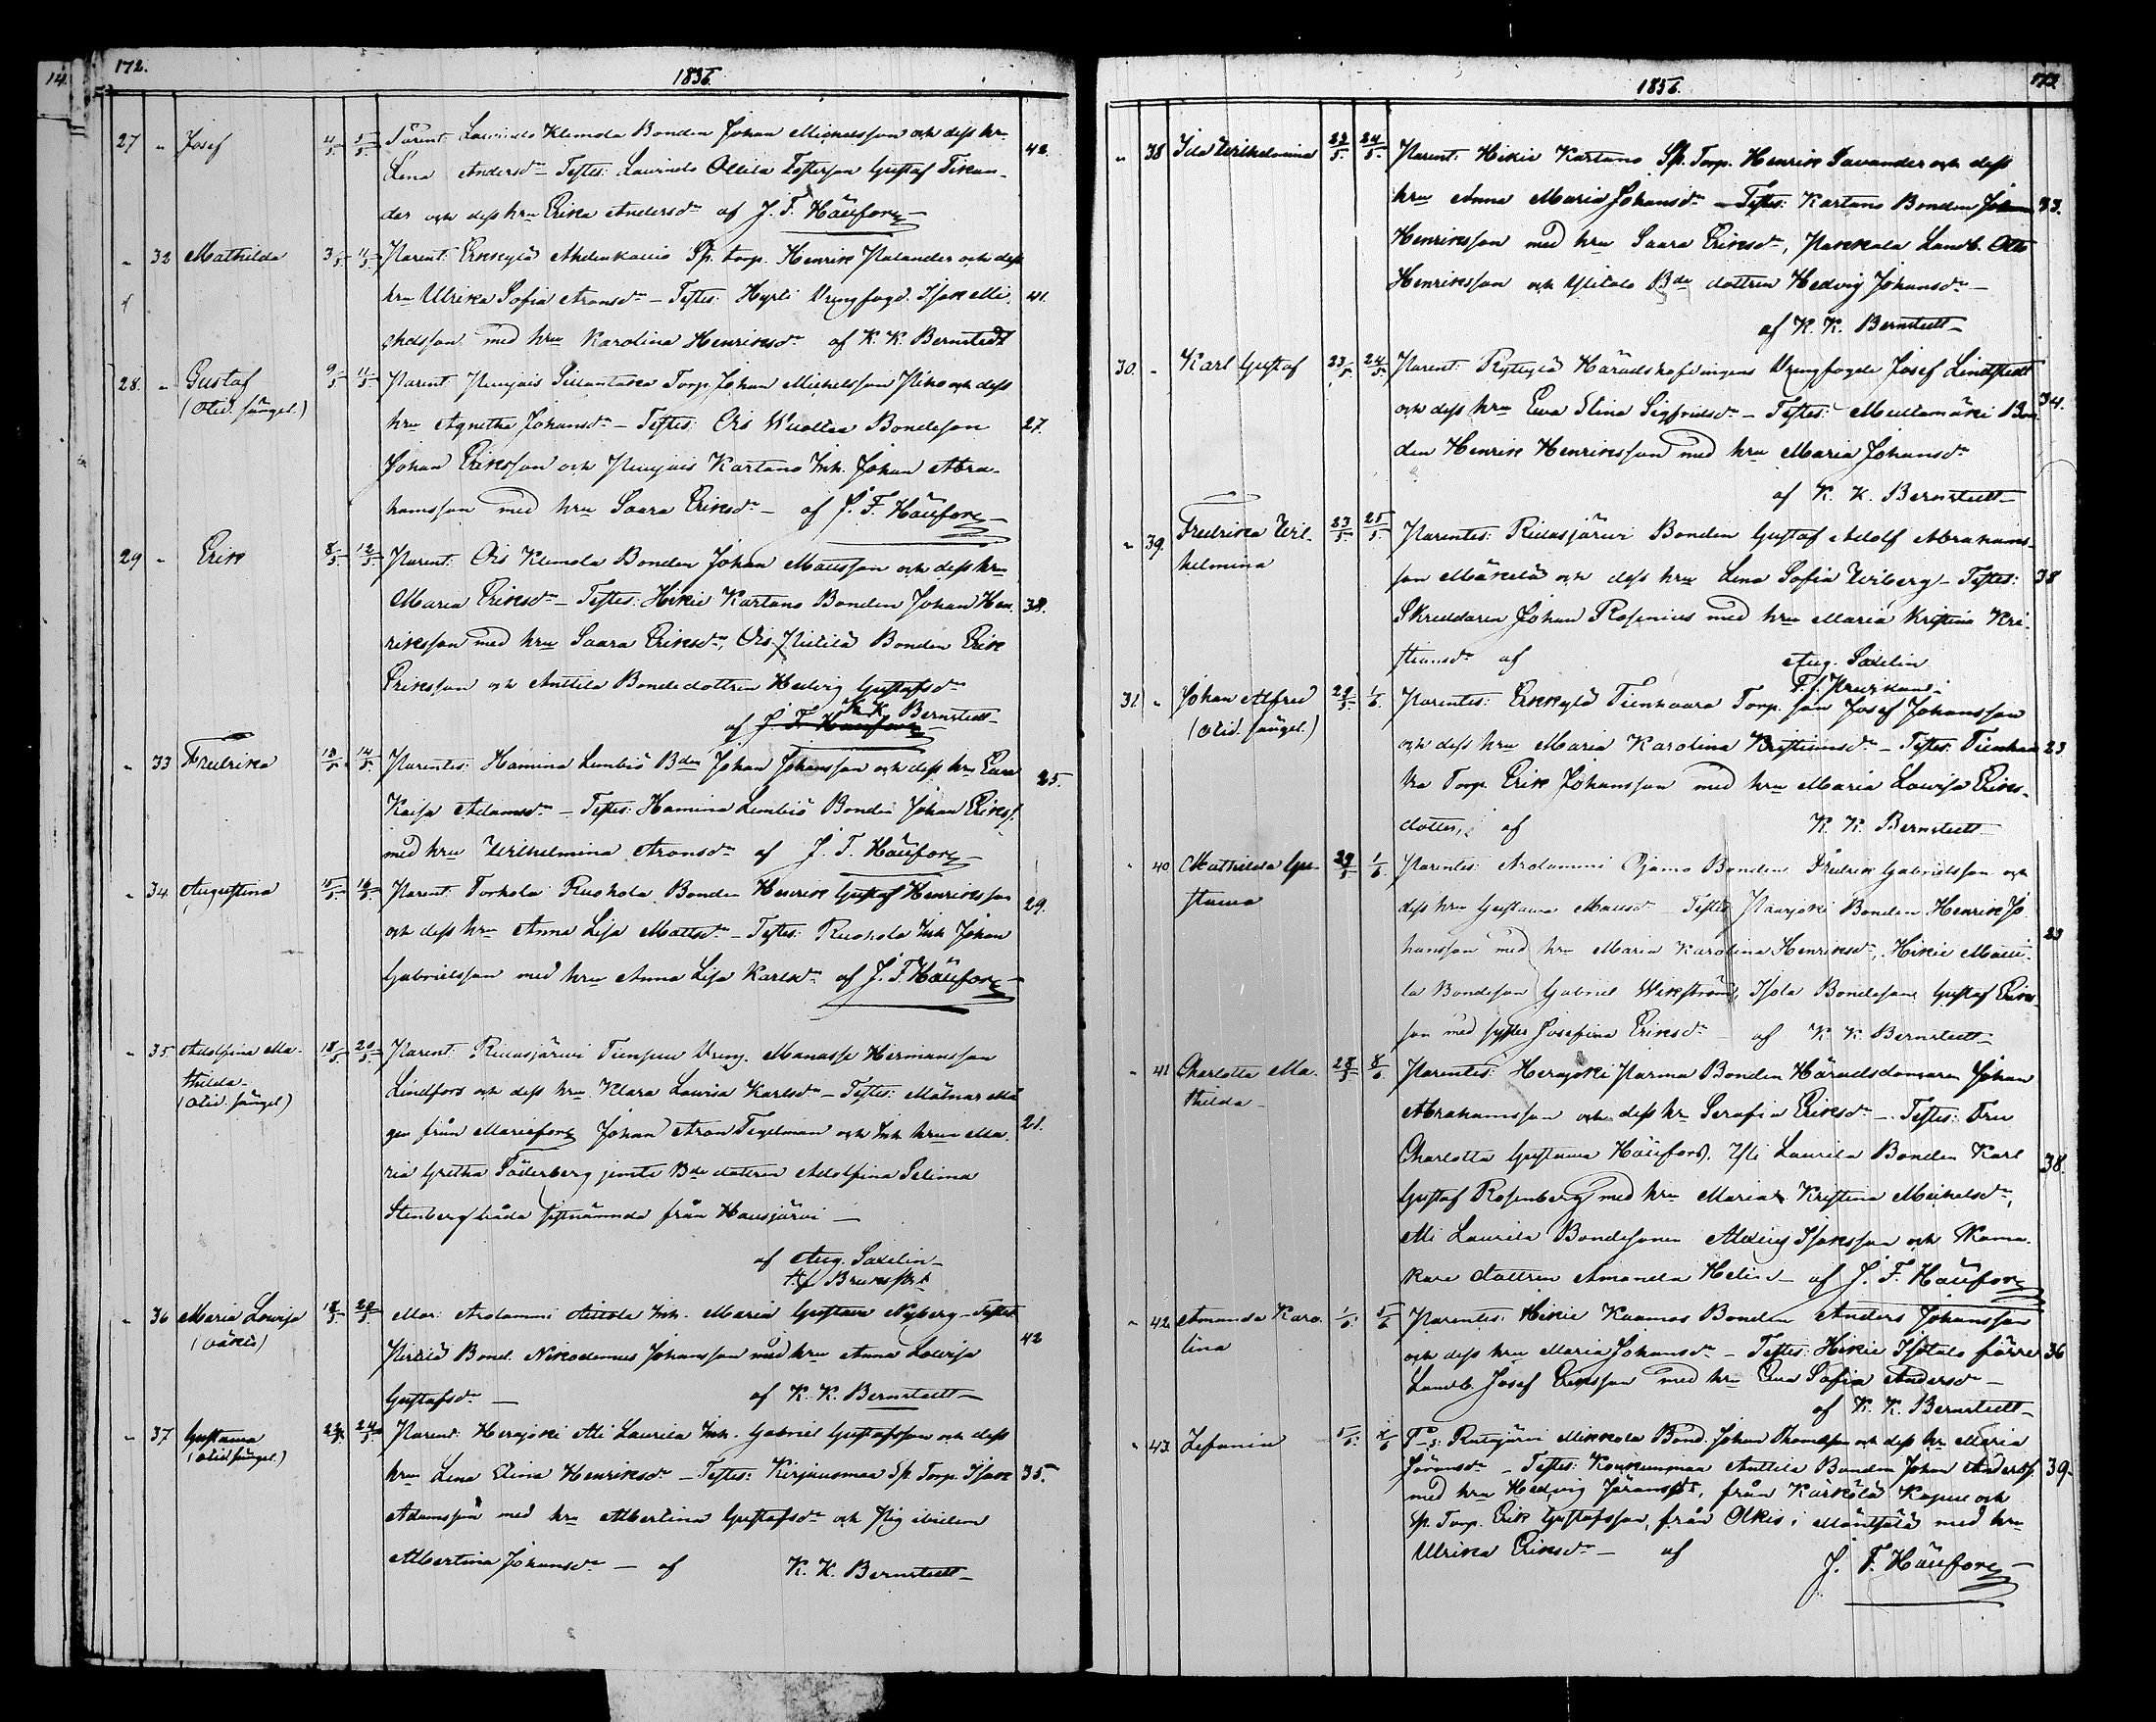 14.
172.
1856.
27 " Josef 4/5. 5/5. Parent: Laurinds Klemola Bonden Johan Mickelsson och dess hru 42.
Lena Andersdr Testes: Laurinds Ollila Testes Gustaf Tikan-
der och dess hru Erika Andersdr af J. F. Häufors
" 32 Mathilda 3/5 11/5. Parent: Erkkylä Ahdenkallio Sp. torp. Henrik Palander och dess
hru Ulrika Sofia Aronsdr – Testes: Hyrli Dryngfogd. Isak Mi- 41.
chelsson med hru Karolina Henriksdr af K. K. Bernstedt
28. " Gustaf 9/5 11/5 Parent: Sillantaka Torp. Johan Michelsson och dess
(Otid. sängel.)
hru Agnetha Johansdr – Testes: Ois Wuolle Bondeson 27.
Johan Eriksson och Kartano Inh. Johan Abra-
hamsson med hru Saara Eriksdr – af J. F. Häufors
29 " Erik 8/5. 12/5. Parent: Ois Klemola Bonden Johan Mattsson och dess hru
Maria Eriksdr – Testes: Hikiä Kartano Bonden Johan Hen- 38.
riksson med hru Saara Eriksdr, Ois Pietilä Bonden Erik
Eriksson och Anttila Bondedottren Hedvig Gustafsdr
K. K. Bernstedt
af J. F. Häufors
" 33 Fredrika 10/5. 14/5. Parentes: Hamina Lembis Bden Johan Johansson och dess hru Eva 25.
Kaisa Adamsdr – Testes: Hamina Lembis Bonden Johan Erikss.
med hru Wilhelmina Aronsdr af J. F. Häufors
" 34 Augustina 15/5. 16/5. Parent: Torhola Ruohola Bonden Henrik Gustaf Henriksson 29.
och dess hru Anna Lisa Mattsdr – Testes: Ruohola Inh. Johan
Gabrielsson med hru Anna Lisa Karlsdr af J. F. Häufors
" 35 Adolfina Ma- 18/5 20/5. Parent: Riuasjärwi Dreng. Manasse Hermansson
thilda
(Otid. sängel)
Lindfors och dess hru Klara Lovisa Karlsdr – Testes: Målnar Må
gen från Mariefors Johan Aron Tegelman och Inh. hrun Ma- 21.
ria Gretha Söderberg jemte Bde dottren Adolfina Selima
Stenberg båda sistnämnda från Hausjärvi –
af Aug. Saxelin
" 36 Maria Lovisa 18/5. 20/5. Mor: Arolammi Inh. Maria Gustava Nyberg – Testes:
(oäkta)
Pietilä Bond. Nikodemus Johansson med hru Anna Lovisa 42
Gustafsdr – af K. K. Bernstedt
" 37 Gustava 22/5. 24/5. Parent: Herajoki Ali Laurila Inh. Gabriel Gustafsson och dess
(Otid sängel.)
hru Lena Stina Henriksdr – Testes: Sp. Torp. Isak 35.
Adamsson med hru Albertina Gustafsdr och Pig ibidem
Albertina Johansdr – af K. K. Bernstedt
1856.
" 38 Ida Wilhelmina 23/5. 24/5. Parent: Hikiä Kartano Sp. Torp. Henrik Tavander och dess
hru Anna Maria Johansdr – Testes: Kartano Bonden Johan 33.
Henriksson med hru Saara Eriksdr, Pakkala Landb. Otto
Henriksson och Ylitalo Bde dottren Hedvig Johansdr –
af K. K. Bernstedt
30 " Karl Gustaf 23/5. 24/5. Parent: Rytkylä Häradshöfdingens Dryngfogde Josef Lindstedt 34.
och dess hru Eva Stina Sigfridsdr – Testes: Mullamäki Bon-
den Henrik Henriksson med hru Maria Johansdr
af K. K. Bernstedt
" 39. Fredrika Wil- 23/5. 25/5. Parentes: Riuasjärwi Bonden Gustaf Adolf Abrahams-
helmina
son Mäkelä och dess hru Lena Sofia Wiberg – Testes: 38
Skreddaren Johan Rosenius med hru Maria Kristina Kri-
stiansdr af Aug. Saxelin
31 " Johan Alfred 29/5. 1/6. Parentes: Erkkylä Tienhaara Torp. son Josef Johansson
(Otid. sängel.)
och dess hru Maria Karolina Kristiansdr – Testes: Tienhaa- 23
ra Torp. Erik Johansson med hru Maria Lovisa Eriks-
dotter, af K. K. Bernstedt
" 40 Mathilda Gu- 29/5 1/6. Parentes: Arolammi Ojamo Bonden Fredrik Gabrielsson och
stava
dess hru Gustava Mattsdr Testes: Bonden Henrik Jo- 23
hansson med hru Maria Karolina Henriksdr, Hikiä Matti-
la Bondeson Gabriel Wikström, Isola Bondeson Gustaf Eriks-
son med syster Josefina Eriksdr af K. K. Bernstedt
" 41 Charlotta Ma- 28/5 8/6. Parentes: Herajoki Parma Bonden Häradsdomaren Johan
thilda
Abrahamsson och dess hru Serafia Eriksdr – Testes: Fru
Charlotta Gustava Häufors. Yli Laurila Bonden Karl 38.
Gustaf Rosenberg med hru Maria Kristina Michelsdr,
Ali Laurila Bondesonen Alexius Isaksson och Kama-
kare dottren Amanda Helin – af J. F. Häufors
" 42. Amanda Karo- 1/6. 5/6 Parentes: Hikiä Kaamos Bonden Anders Johansson
lina
och dess hru Maria Johansdr – Testes: Hikiä Isotalo förre 36
Landb. Josef Eriksson med hru Eva Sofia Andersdr –
af K. K. Bernstedt
" 43. Zefania 5/6. Mikkola Bond. Johan Thomasson och dess hru Maria
Göransdr – Testes: Anttila Bonden Johan Anderss. 39.
med hru Hedvig Göransdr, från Kärkölä Kapell och
Sp. Torp. Erik Gustafsson, från Olkis i Mäntsälä med hru
Ulrika Eriksdr – af J. F. Häufors